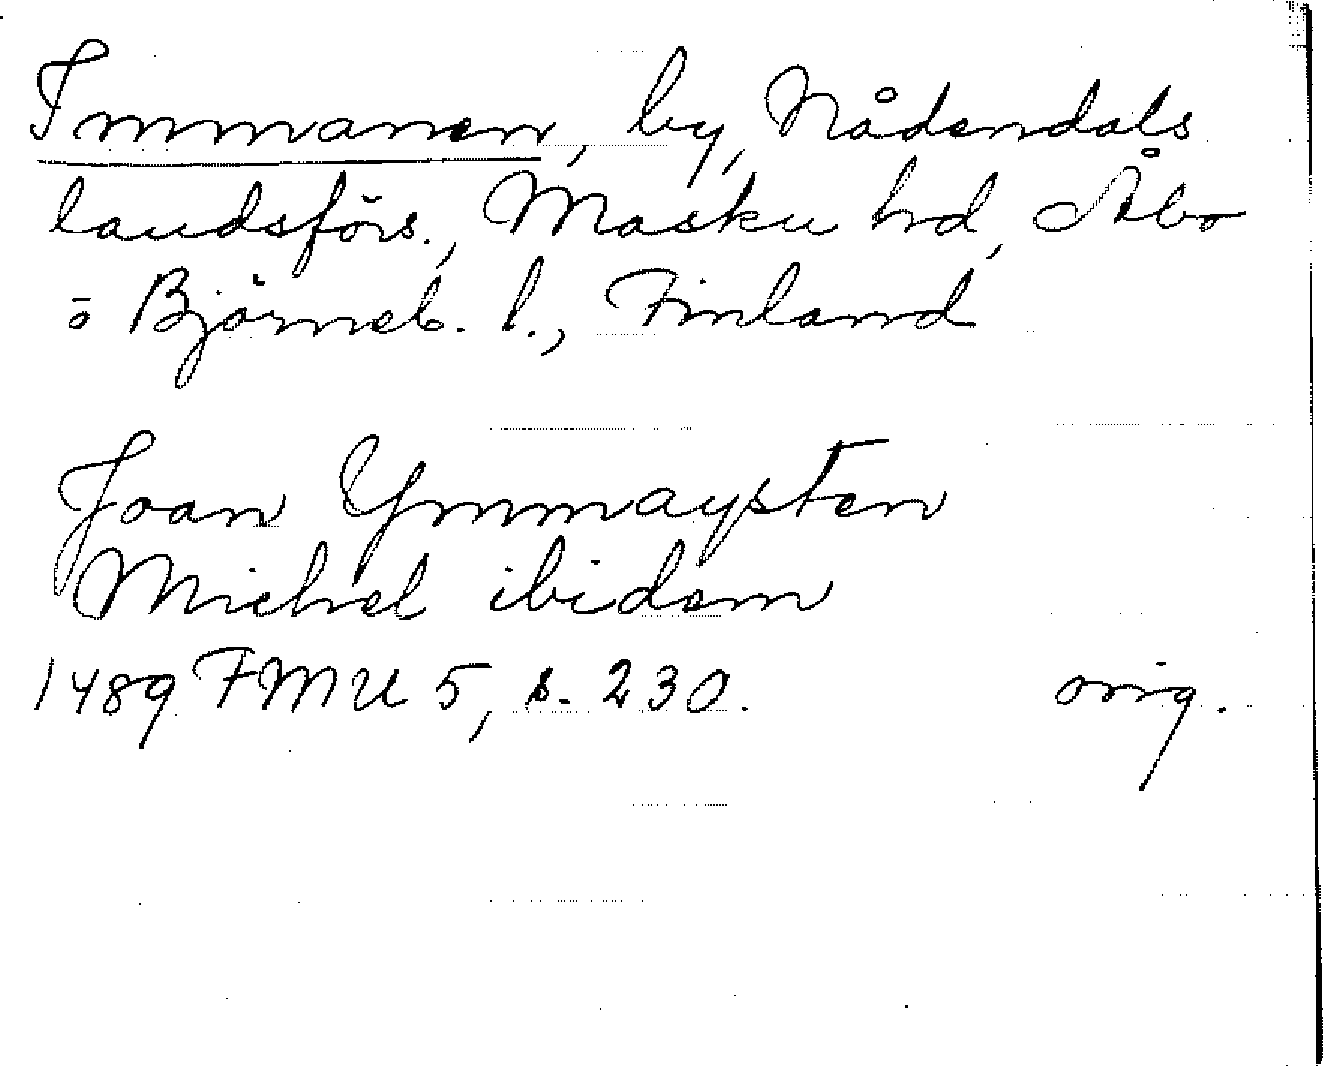 Immanen, by, Nådendals
landsförs., Masku hd, Åbo
o Björneb. l., Finland
Joan Ymmaysten
Michel ibidem
1489 FMU 5, s. 230. orig.